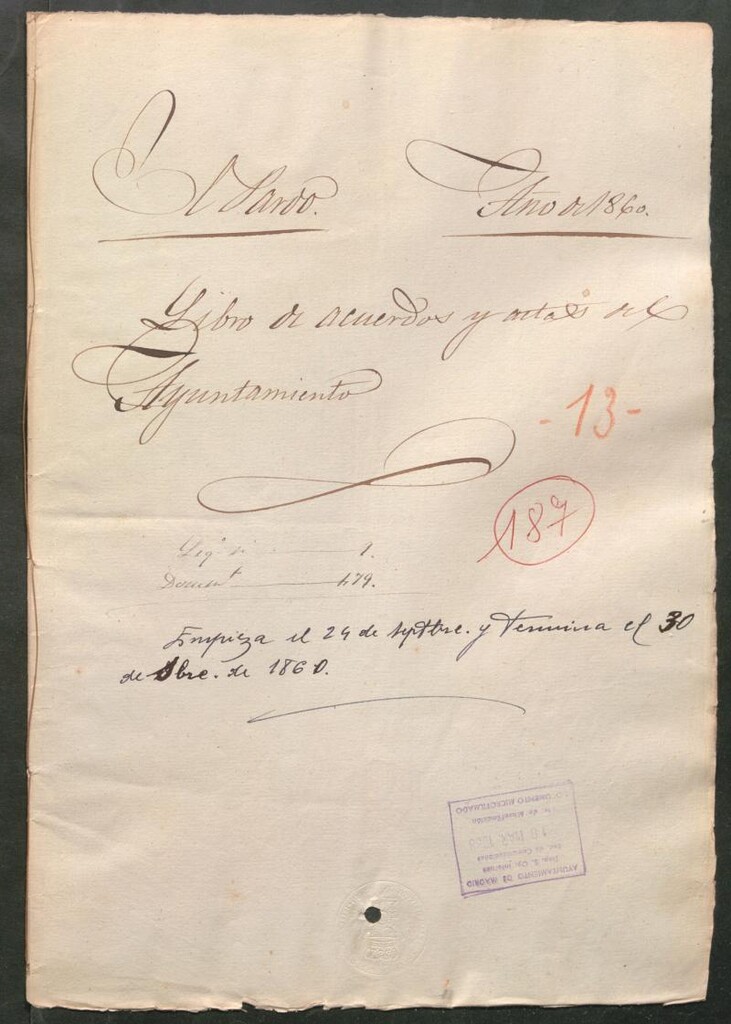 El Pardo. Año de 1860.
Libro de acuerdos y actas del
Ayuntamiento
- 13 -
187
Leg.º 1.
Docum.t 479.
Empieza el 24 de Septbre. y termina el 30
de Dbre. de 1860.
AYUNTAMIENTO DE MADRID
DOCUMENTO MICROFILMADO